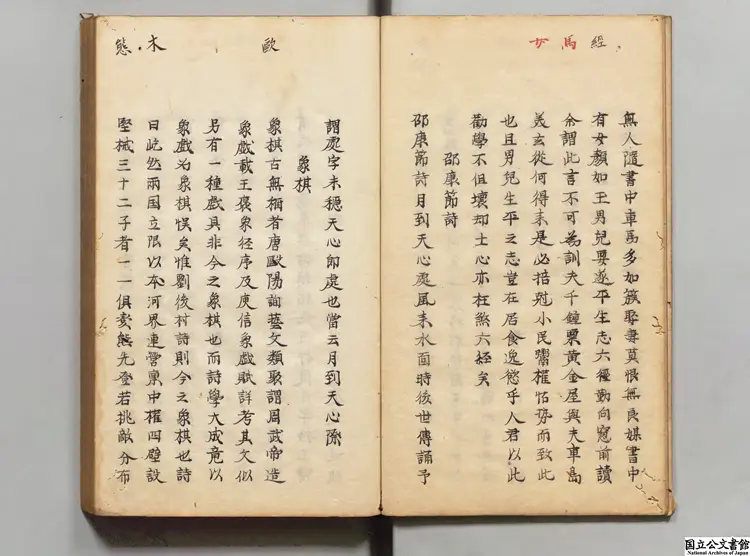 經馬女
無人隨書中車馬多如簇娶妻莫恨無良媒書中
有女顏如玉男兒要遂平生志六經勤向窓前讀
余謂此言不可為訓夫千鍾粟黃金屋與夫車馬
美玄從何得来是必掊尅小民鬻權怙势而致此
也且男兒生平之志豈在居食逸慾乎人君以此
勸學不但壞却士心亦枉煞六經矣
邵康節詩
邵康節詩月到天心處風来水面時後世傳誦予
歐
木熊
謂處字未穩天心即處也當云月到天心際
象棋
象棋古無稱者唐歐陽詢藝文類聚謂周武帝造
象戲載王褒象径序及庾信象戲賦詳考其文似
另有一種戲具非今之象棋也而詩學大成竟以
象戲为象棋悮矣惟劉後村詩則今之象棋也詩
曰屹然兩国立限以本河界連營稟中權四壁設
堅械三十二子者一一俱変態先登若挑敵分布
国立公文書館
National Archives of Japan